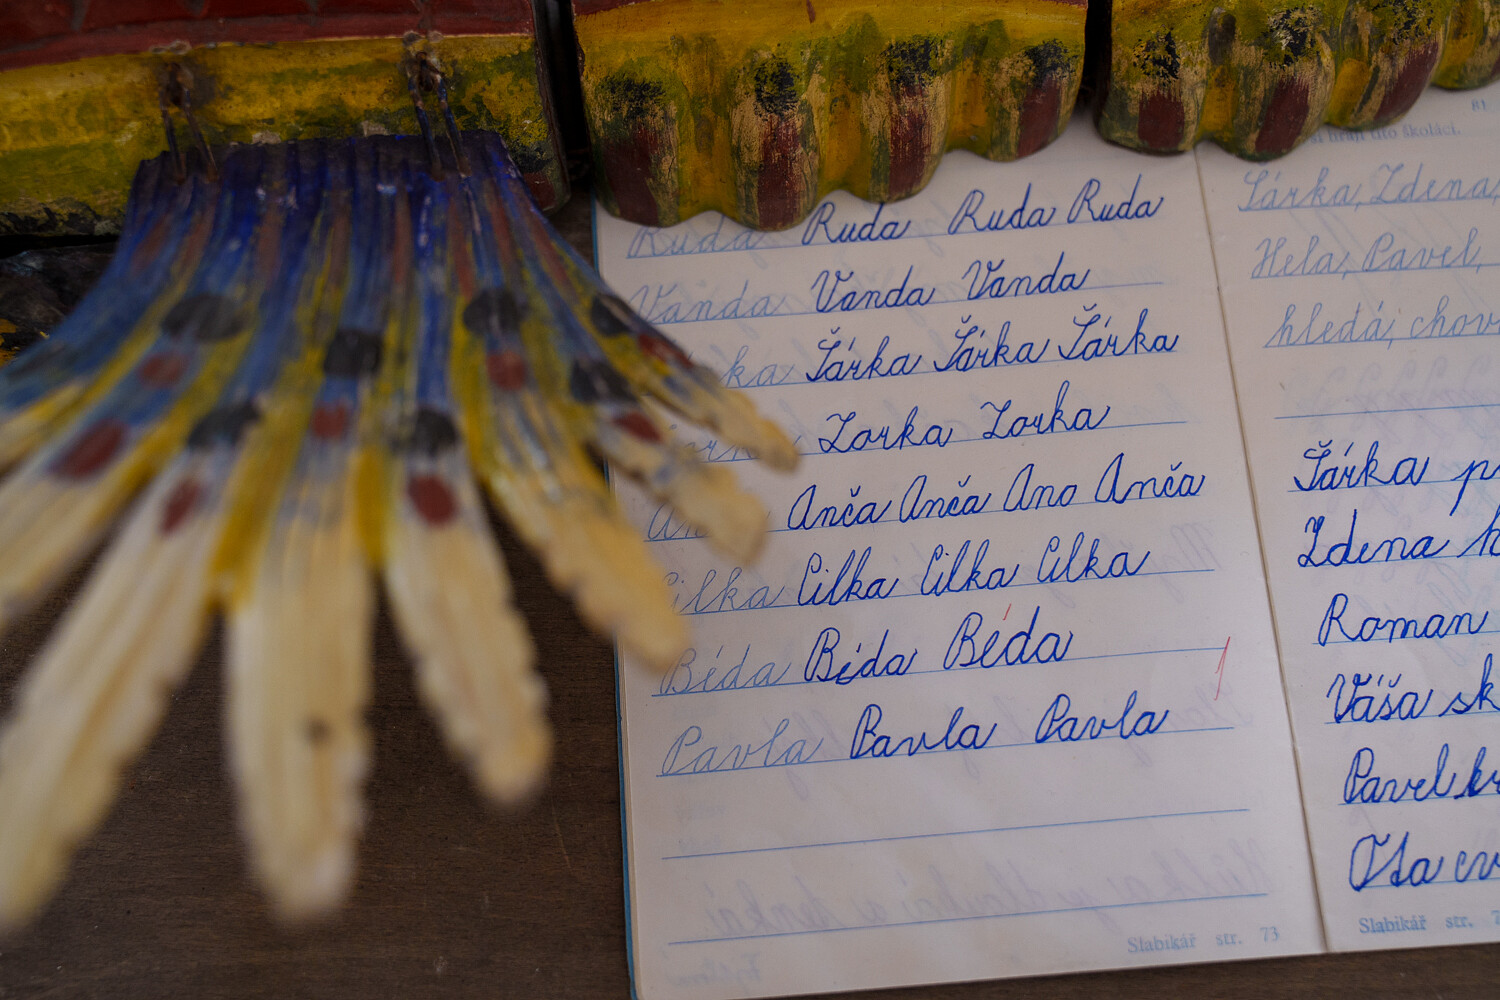 Ruda Ruda Ruda Ruda
Vanda Vanda Vanda
Šárka Šárka Šárka
Zorka Zorka
Anča Anča Ana Anča
Cilka Cilka Cilka Cilka
Béda Béda Béda
Pavla Pavla Pavla
Slabikář str. 73
81
hrají tito školáci.
Šárka, Zdena,
Hela, Pavel,
hledá, chov
Šárka
Zdena
Roman
Váša sk
Pavel
Ota cv
Slabikář str.